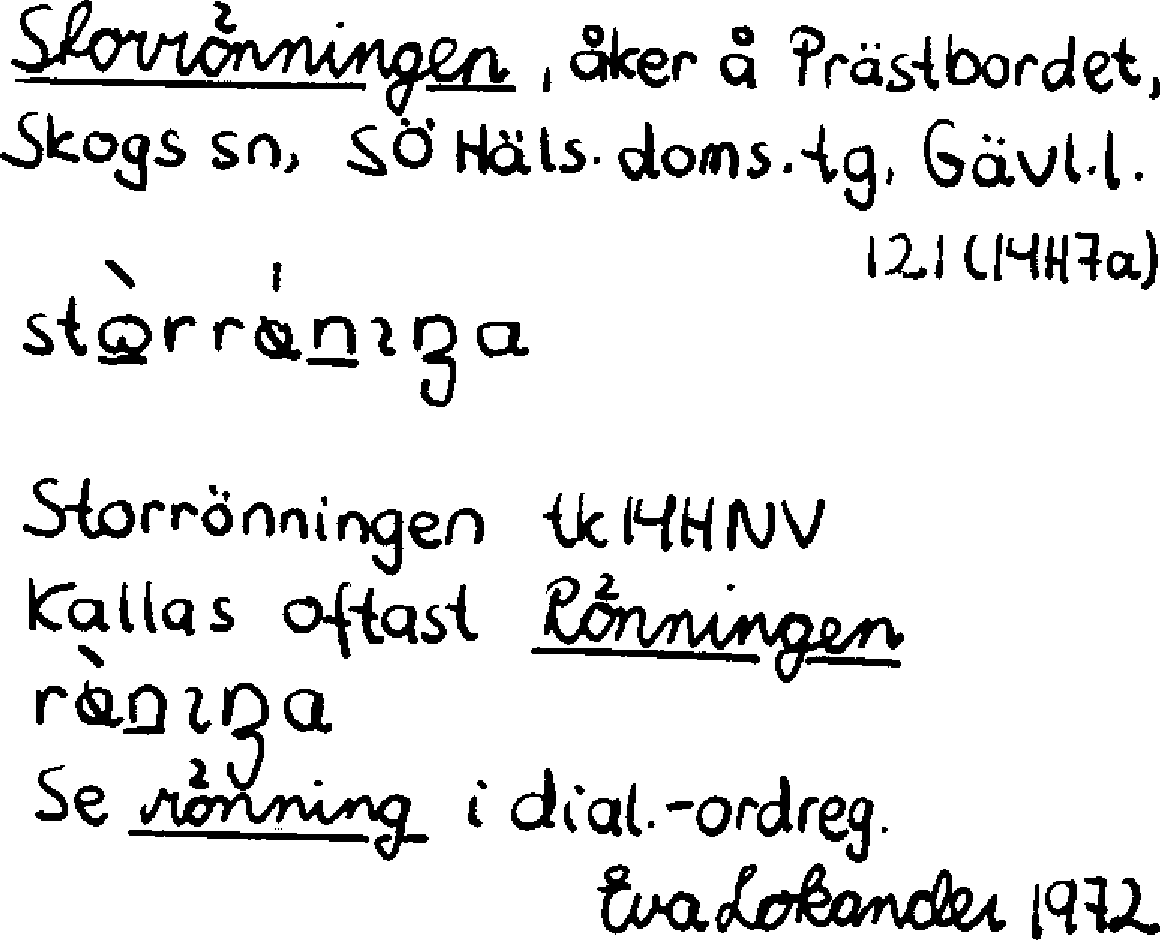 Storrönningen, åker å Prästbordet,
Skogs sn, SÖ Häls. doms.-tg, Gävl.l.
121 (14H7a)
Storrönningen tk 14H NV
Kallas oftast Rönningen
Se rönning i dial.-ordreg.
Eva Lokander 1972